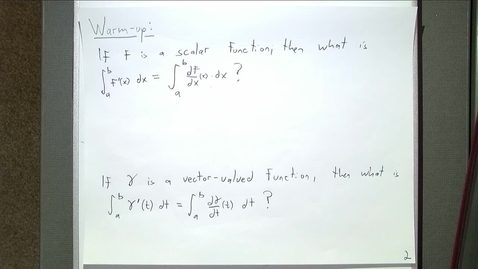 Warm-up:
If f is a scalar function, then what is
∫_a^b f'(x) dx = ∫_a^b df/dx (x) dx ?
If γ is a vector-valued function, then what is
∫_a^b γ'(t) dt = ∫_a^b dγ/dt (t) dt ?
2